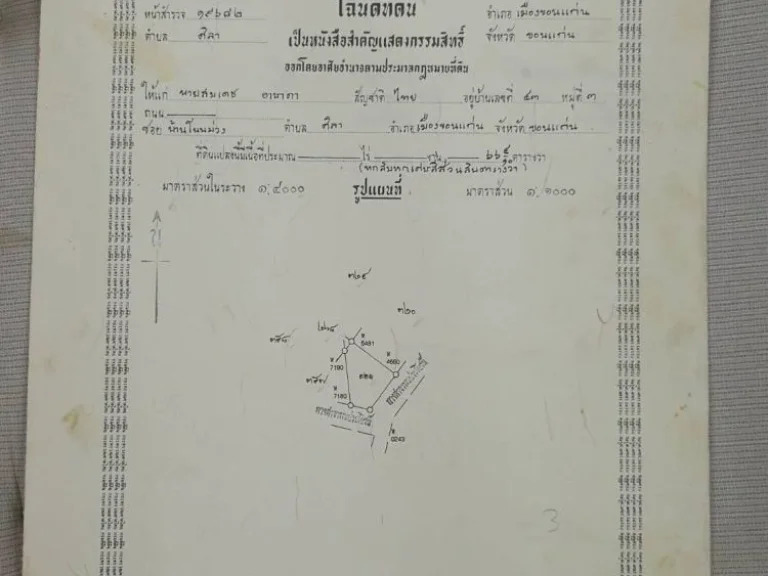 หน้าสำรวจ ๑๙๖๘๒
ตำบล ศิลา
โฉนดที่ดิน
เป็นหนังสือสำคัญแสดงกรรมสิทธิ์
ออกโดยอาศัยอำนาจตามประมวลกฎหมายที่ดิน
อำเภอ เมืองขอนแก่น
จังหวัด ขอนแก่น
ให้แก่ นายสมเดช สัญชาติ ไทย อยู่บ้านเลขที่ ๔๓ หมู่ที่ ๓
ถนน
ซอย บ้านโนนม่วง ตำบล ศิลา อำเภอ เมืองขอนแก่น จังหวัด ขอนแก่น
ที่ดินแปลงนี้มีเนื้อที่ประมาณ ไร่ งาน ตารางวา
มาตราส่วนในระวาง ๑:๔๐๐๐ รูปแผนที่ มาตราส่วน ๑:๑๐๐๐
น
๗๒๐
ข 5481
ข 7190
ข 4660
ข 7180
ทางสาธารณประโยชน์
ทางสาธารณประโยชน์
ข 0243
3